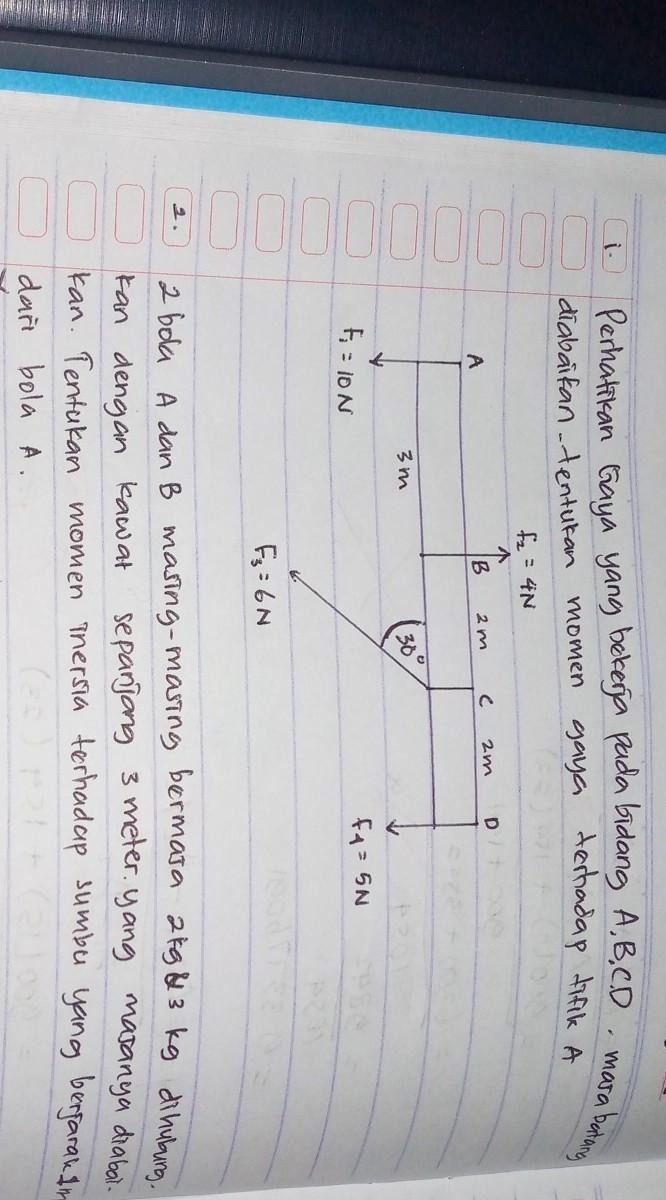 1. Perhatikan Gaya yang bekerja pada bidang A,B,C,D. masa batang
diabaikan. tentukan momen gaya terhadap titik A
F₂ = 4N
A B 2m C 2m D
3m
30°
F₁ = 10 N
F₄ = 5N
F₃ = 6 N
2. 2 bola A dan B masing-masing bermasa 2 kg & 3 kg dihubung.
kan dengan kawat sepanjang 3 meter. yang masanya diabai.
kan. Tentukan momen inersia terhadap sumbu yang berjarak 1 m
dari bola A.